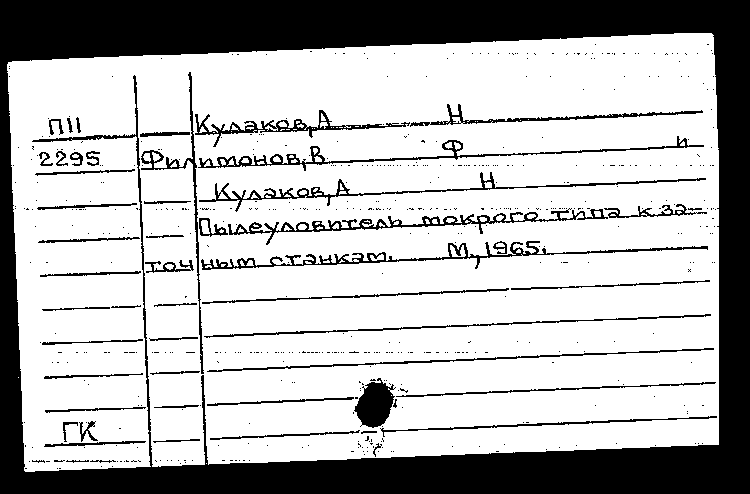 П11 Кулаков,А Н
2295 Филимонов,В Ф и
Кулаков,А Н
Пылеуловитель мокрого типа к за-
точным станкам. М,1965.
ГК